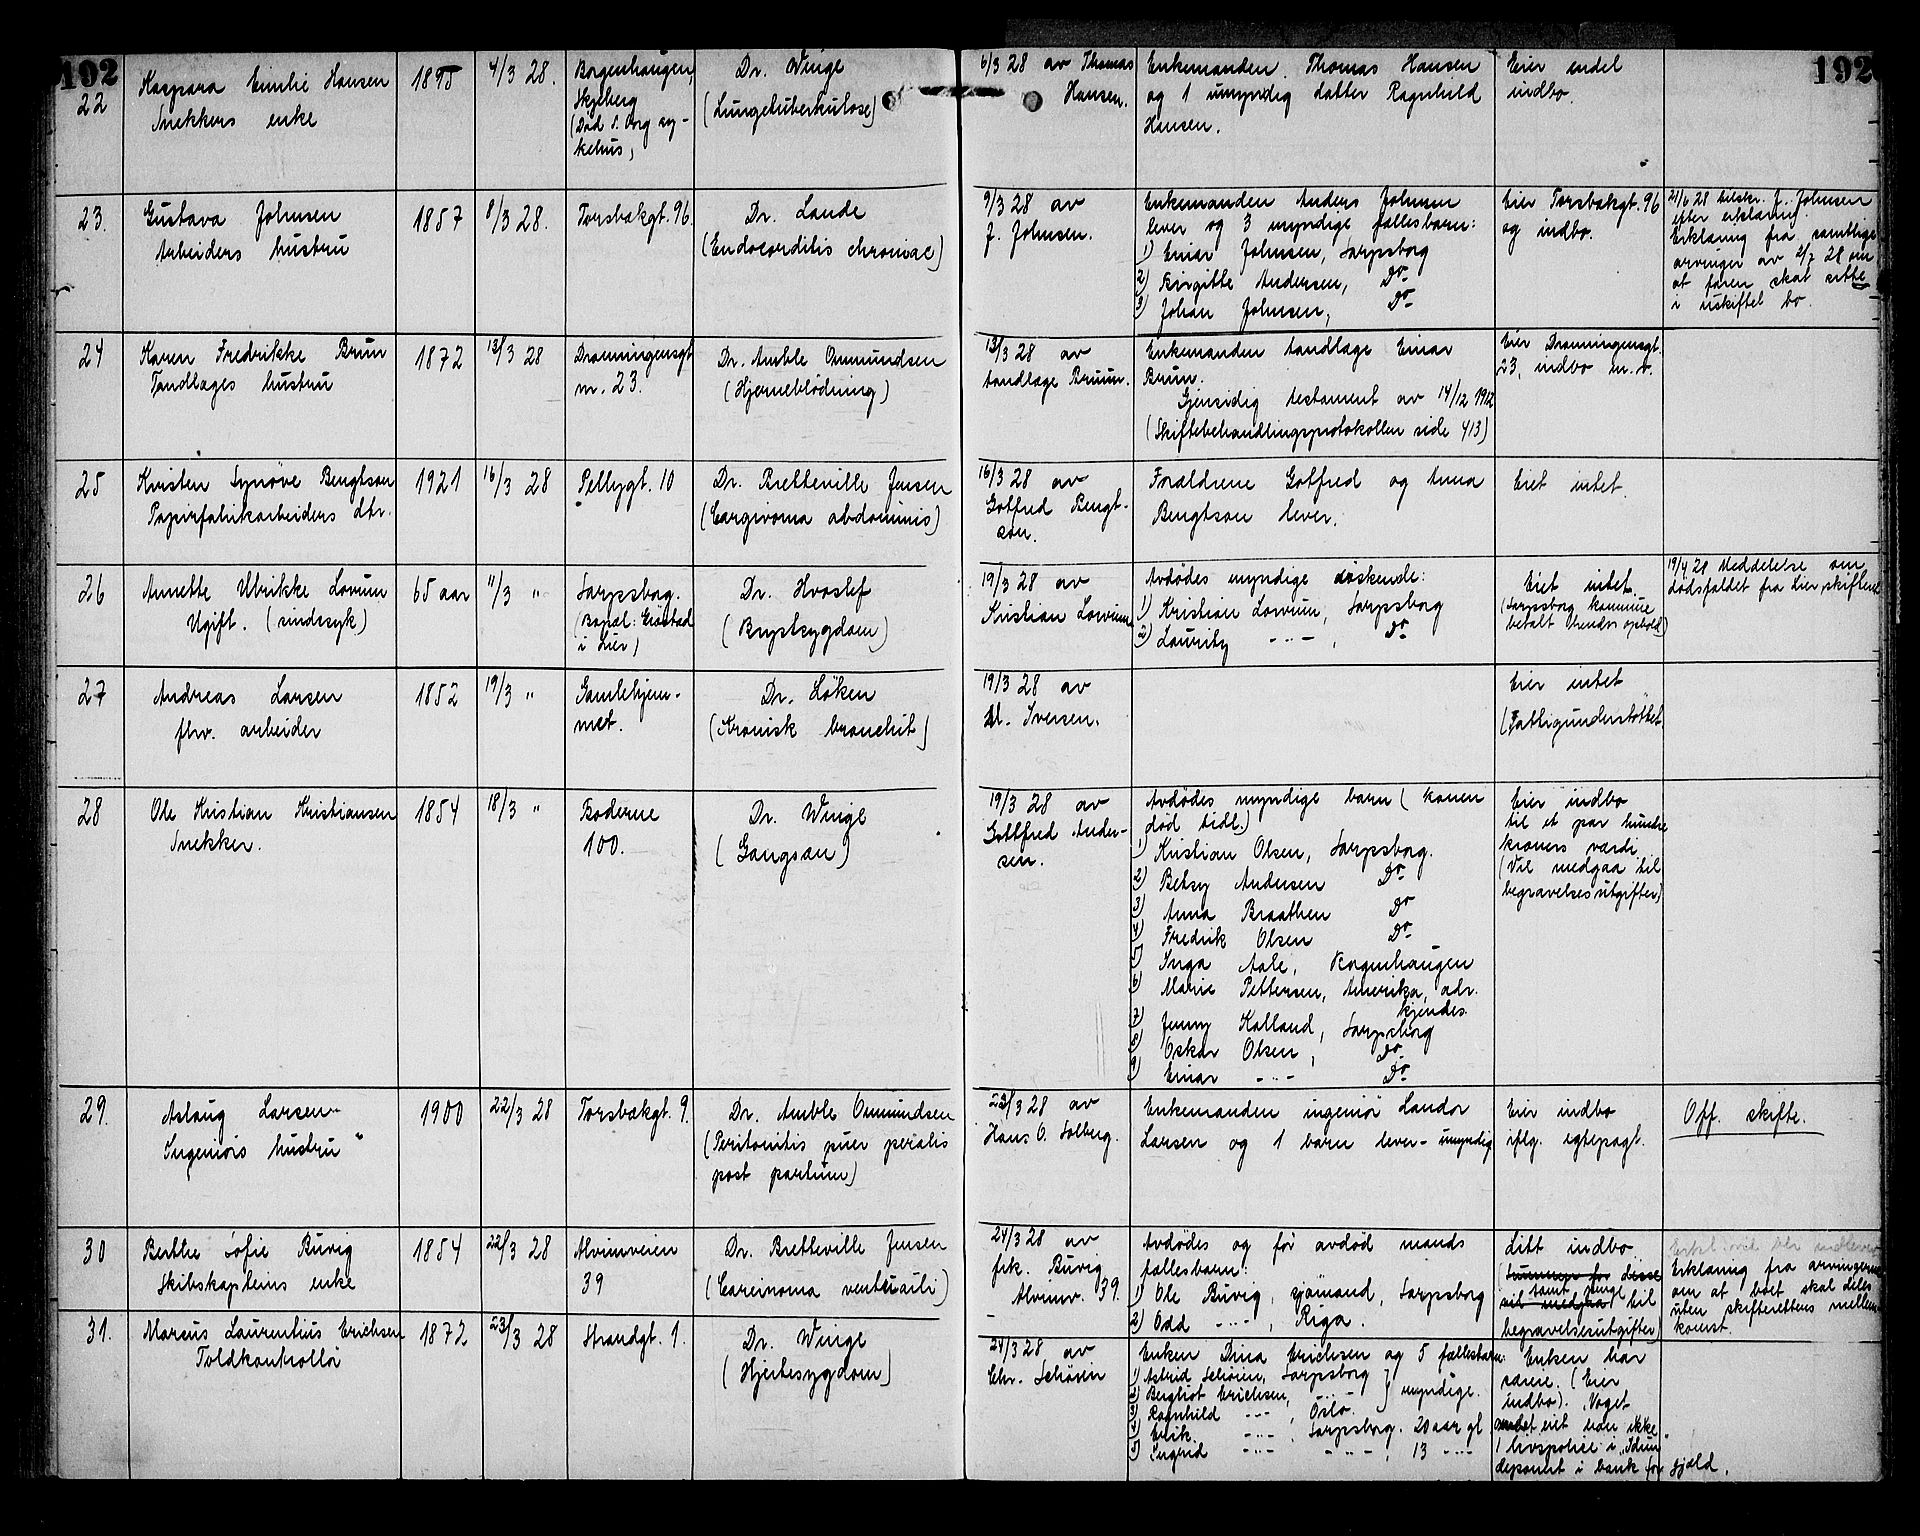 192
192
22
Kaspara Emilie Hansen
Snekkers enke
1895
4/3 28.
Borgenhaugen,
Skjeberg
(Død S. Org sy-
kehus,
Dr. Winge
(Lungetuberkulose)
6/3 28 av Thomas
Hansen.
Enkemanden Thomas Hansen
og 1 umyndig datter Ragnhild
Hansen.
Eier endel
indbo.
23.
Gustava Johnsen
Arbeiders hustru
1857
8/3 28.
Torsbakgt. 96.
Dr. Lande
(Endocarditis chroniac)
9/3 28 av
J. Johnsen.
Enkemanden Anders Johnsen
lever og 3 myndige fællesbarn:
1) Einar Johnsen, Sarpsborg
2) Birgitte Andersen, Do
3) Johan Johnsen, Do
Eier Torsbakgt. 96
og indbo.
21/6 28 tilskr. J. Johnsen
efter erklæring.
Erklæring fra samtlige
arvinger av 2/7 28 om
at faren skal sitte
i uskiftet bo.
24
Karen Fredrikke Brun
Tandlæges hustru
1872
13/3 28
Dronningensgt
nr. 23.
Dr. Amble Ommundsen
(Hjerneblödning)
13/3 28 av
tandlæge Bruun.
Enkemanden tandlæge Einar
Brun.
Gjensidig testament av 14/12 1912
(Skiftebehandlingsprotokollen side 413)
Eier Dronningensgt.
23, indbo m.v.
25
Kirsten Synöve Bengtson
Papirfabrikarbeiders dtr.
1921
16/3 28
Pellygt. 10
Dr. Bretteville Jensen
(Carginoma abdominis)
16/3 28 av
Gotfred Bengt-
son.
Forældrene Gotfred og Anna
Bengtson lever.
Eiet intet.
26
Annette Ulrikke Lovum
Ugift. (sindssyk)
65 aar
11/3 "
Sarpsborg.
(Bopæl:
i Lier)
Dr. Hvoslef
(Brystsygdom)
19/3 28 av
Kristian Lovum
Avdödes myndige söskende:
1) Kristian Lovum, Sarpsborg
2) Lauritz -"- , Do
Eiet intet.
(Sarpsborg kommune
betalt hendes ophold)
19/4 28 Meddelelse om
dödsfaldet fra Lier skifteret
27
Andreas Larsen
fhv. arbeider
1852
19/3 "
Gamlehjem-
met.
Dr. Løken
(Kronisk bronchit)
19/3 28 av
M. Iversen.
Eier intet
(Fattigunderstöttet
28
Ole Kristian Kristiansen
Snekker.
1854
18/3 "
Boderne
100.
Dr. Winge
(Gangræn)
19/3 28 av
Gottfred Ander-
sen.
Avdödes myndige barn (konen
død tidl.)
1) Kristian Olsen, Sarpsborg.
2) Betsy Andersen Do
3) Anna Braathen Do
4) Fredrik Olsen Do
5) Inga Aale, Borgenhaugen
6) Marie Pettersen, Amerika, adr.
kjendes
7) Jenny Kalland, Sarpsborg
8) Oskar Olsen , Do
9) Einar -"- Do
Eier indbo
til et par hundre
kroners værdi.
(Vil medgaa til
begravelsesutgifter)
29.
Aslaug Larsen
Ingeniörs hustru
1900
22/3 28
Torsbækgt. 9.
Dr. Amble Ommundsen
(Peritonitis puer peralis
post partum)
23/3 28 av
Hans O. Solberg.
Enkemanden ingeniör Landor
Larsen og 1 barn lever - umyndig
Eier indbo
iflg. egtepagt.
Off. skifte.
30
Berthe Sofie Buvig
Skibskapteins enke
1854
22/3 28
Alvimveien
39
Dr. Bretteville Jensen
(Carcinoma ventriculi)
24/3 28 av
frk. Buvig
Alvimv. 39.
Avdödes og för avdöd mands
fællesbarn:
1) Ole Buvig, sjömand, Sarpsborg
2) Odd -"- , Riga.
Litt indbo.
(Summen for disse
samt penge
vil medgaa til
begravelsesutgifter)
Erkl. vil bli indlever
Erklæring fra arvingerne
om at boet skal deles
uten skifterettens mellem-
komst.
31.
Marcus Laurentius Erichsen
Toldkontrollör
1872
23/3 28
Strandgt. 1.
Dr. Winge
(Hjertesygdom)
24/3 28 av
Chr. Schörin
Enken Dina Erichsen og 5 fællesbarn:
1) Astrid Schörin, Sarpsborg
2) Bergliot Erichsen, -"- } myndige.
3) Ragnhild -"- , Oslo.
4) Erik. -"- , Sarpsborg. 20 aar gl
5) Ingrid -"- -"- , 13 -"-
Enken har
særeie. (Eier
indbo). Noget
eiet han ikke.
1 livspolice i "Idun
deponert i bank for gjæld.